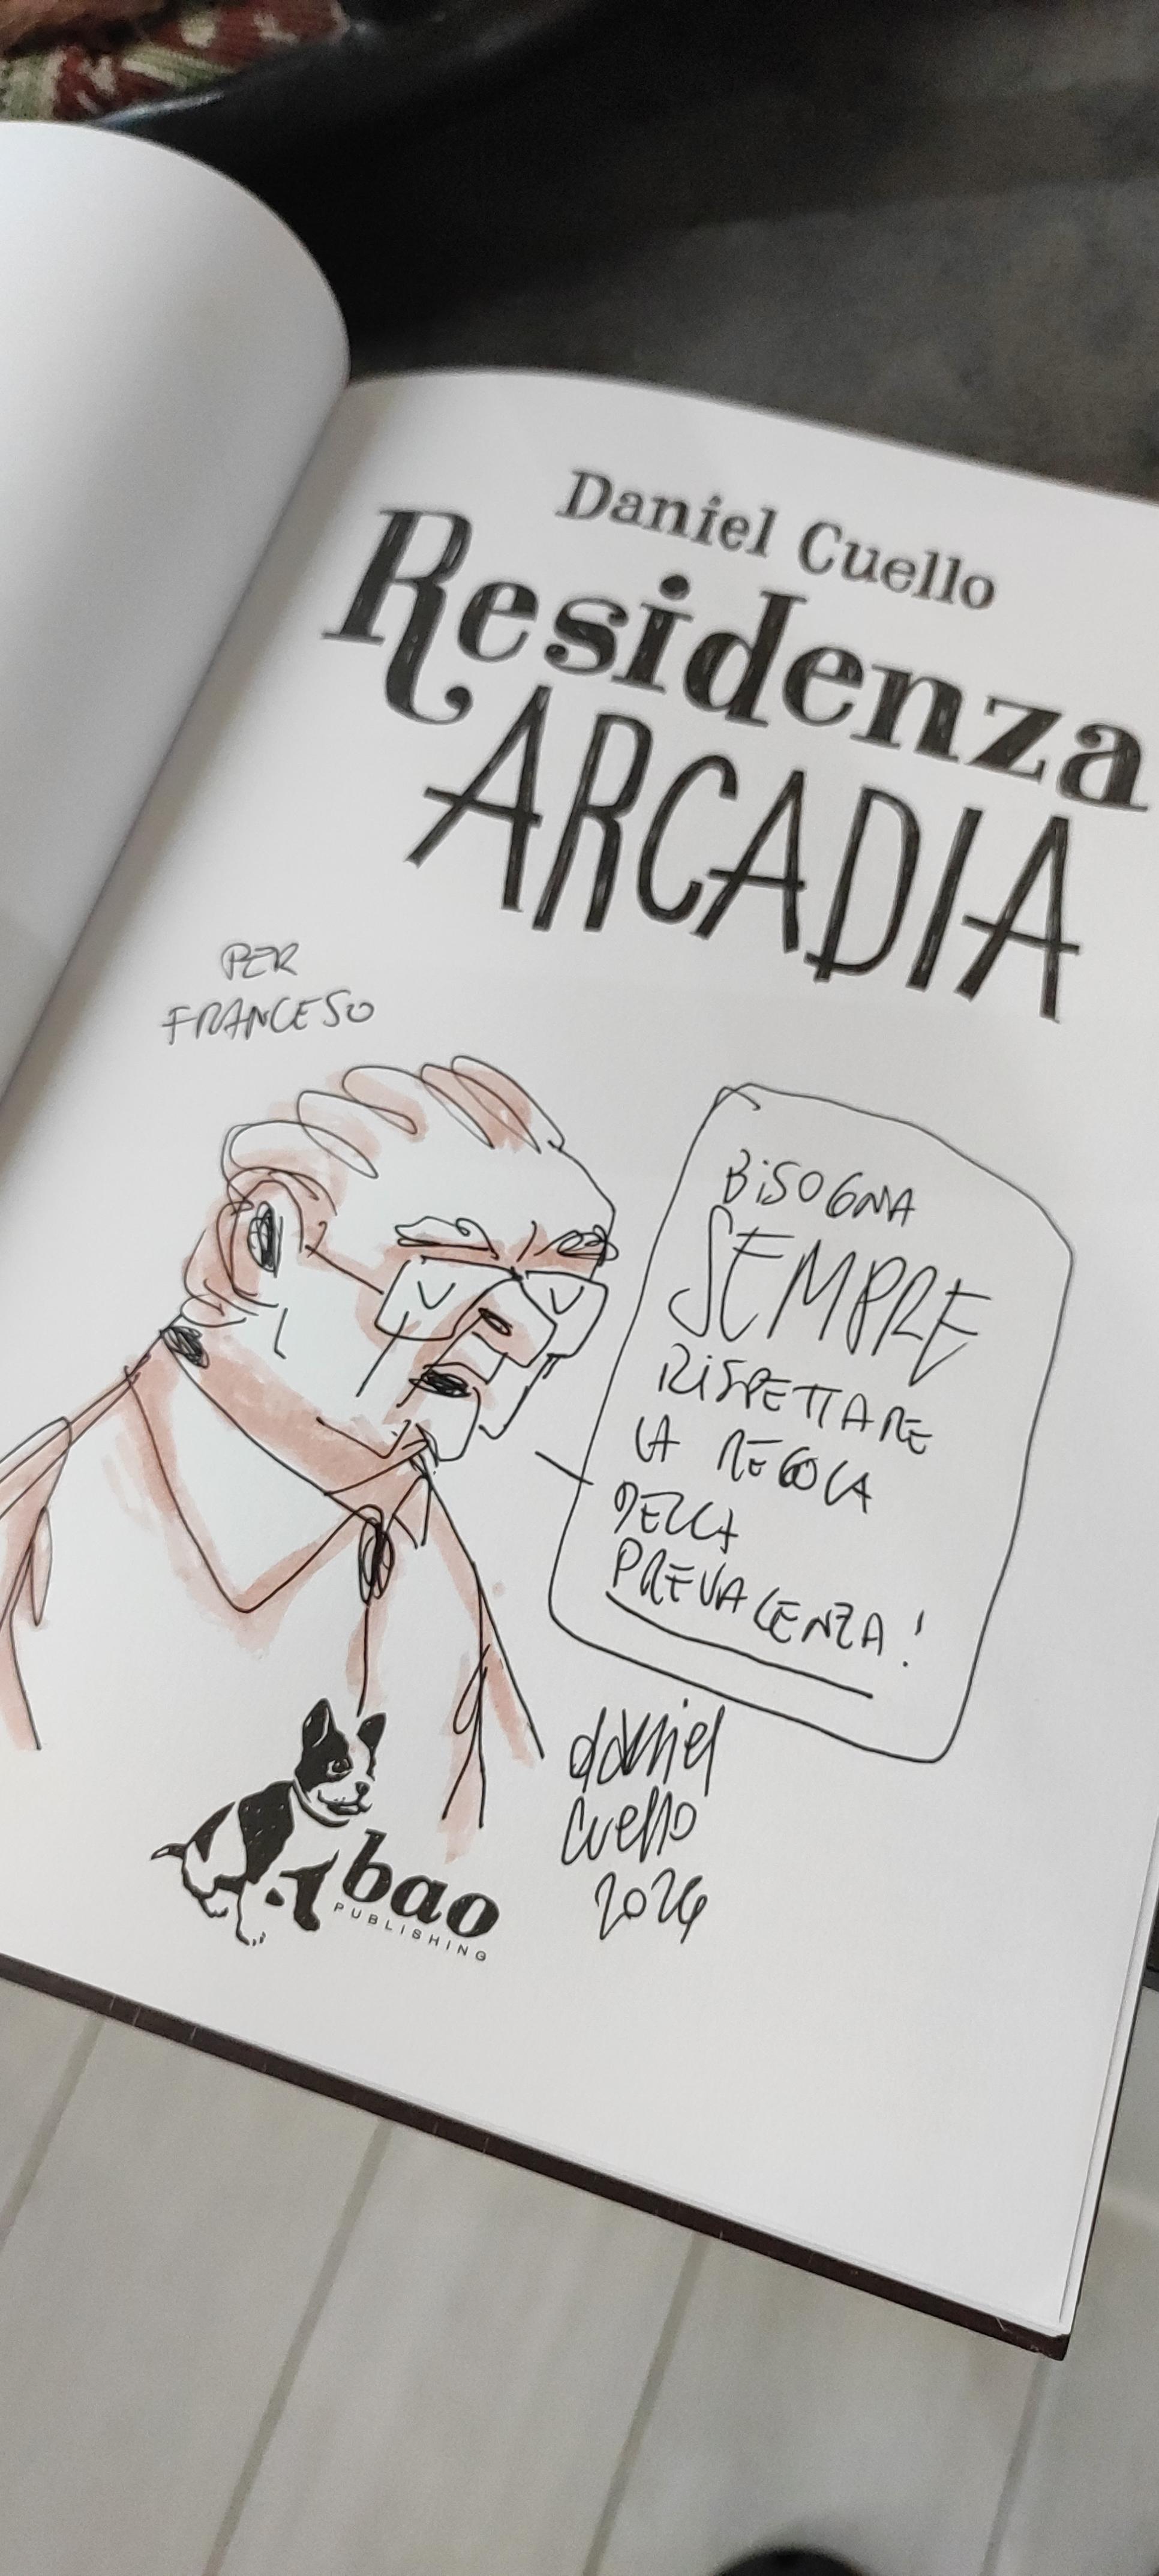 Daniel Cuello
Residenza
ARCADIA
PER
FRANCESO
BiSOGNA
SEMPRE
RiSPETTARE
LA REGOLA
DELLA
PREVALENZA!
daniel
cuello
2024
bao
PUBLISHING